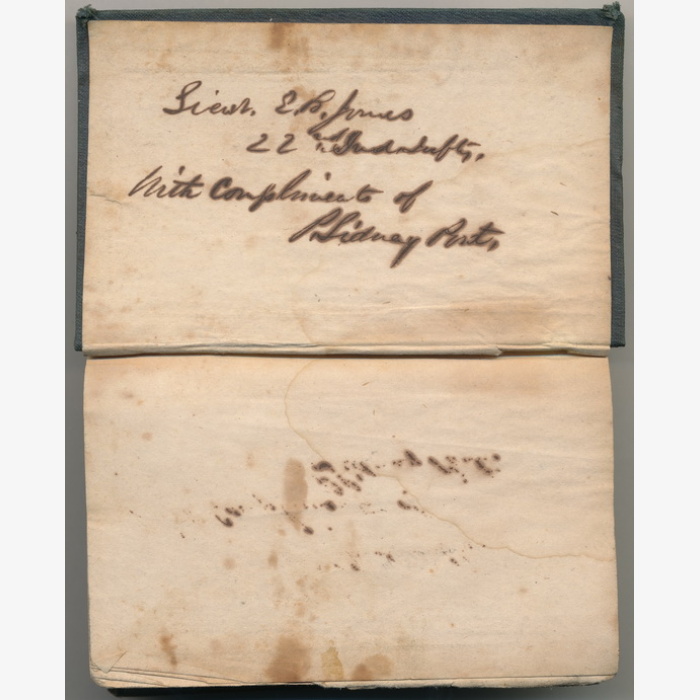 Lieut. E. B. Jones
22nd Ind. Infty,
With compliments of
P Sidney Post,